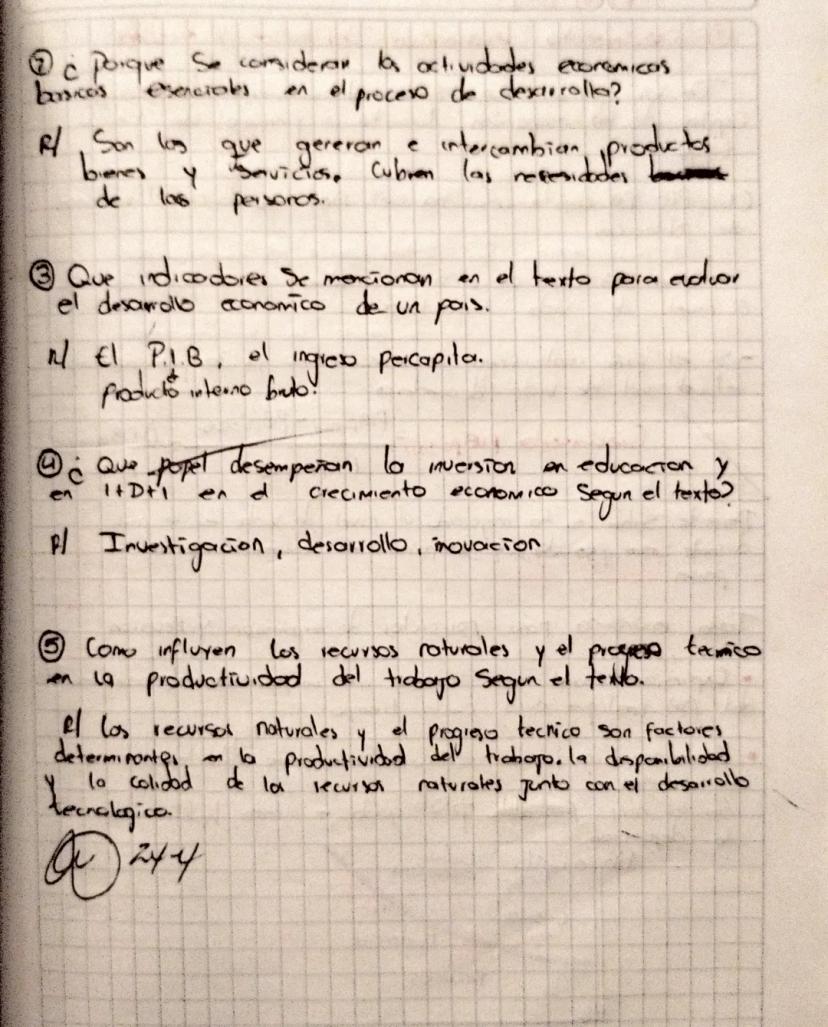 ② ¿ Porque se consideran las actividades economicas
basicas esenciales en el proceso de desarrollo?
R/ Son las que generan e intercambian productos
bienes y servicios. Cubren las necesidades
de las personas.
③ Que indicadores se mencionan en el texto para evaluar
el desarrollo economico de un pais.
R/ El P.I.B, el ingreso percapita.
Producto interno bruto.
④ ¿ Que papel desempeñan la inversion en educacion y
en I+D+I en el crecimiento economico Segun el texto?
R/ Investigacion, desarrollo, inovacion
⑤ Como influyen los recursos naturales y el progreso tecnico
en la productividad del trabajo Segun el texto.
R/ Los recursos naturales y el progreso tecnico son factores
determinantes en la productividad del trabajo. la disponibilidad
y la calidad de los recursos naturales junto con el desarrollo
tecnologico.
24-4